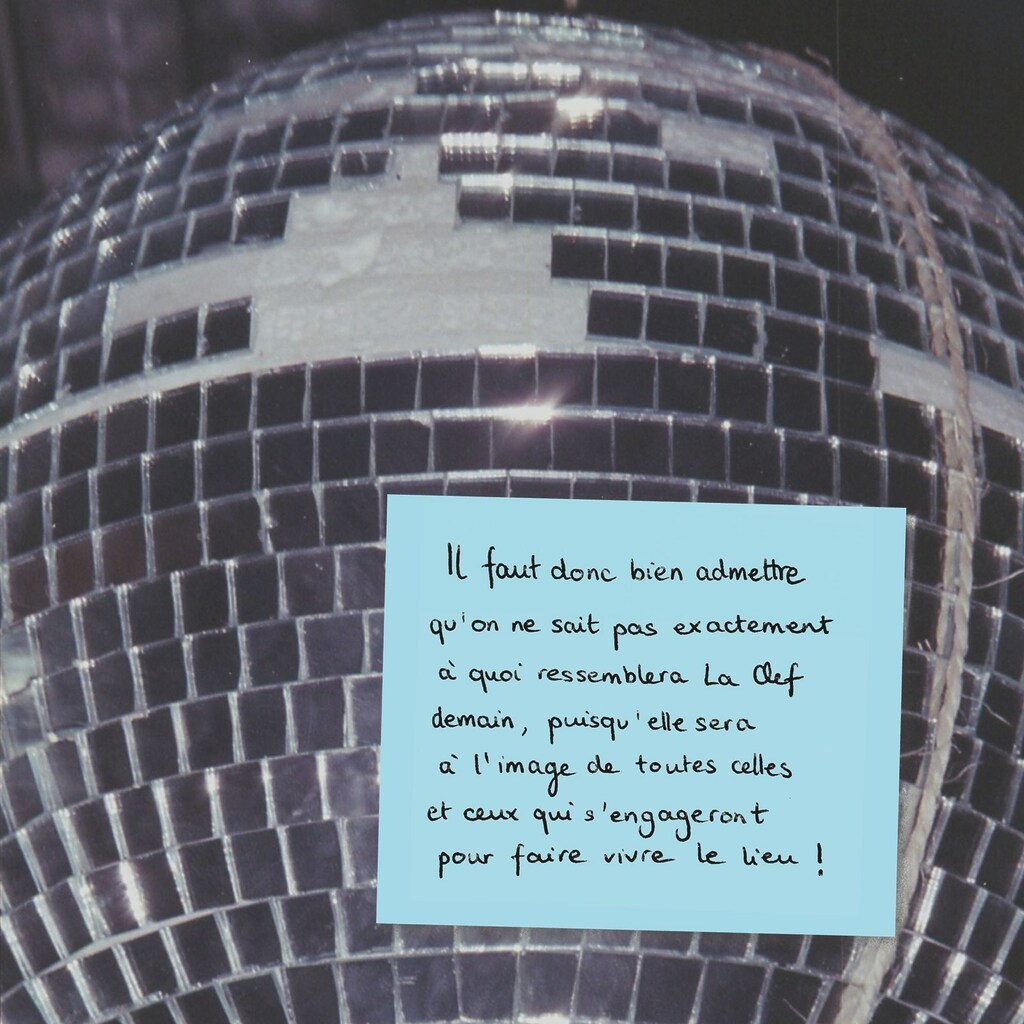 Il faut donc bien admettre
qu'on ne sait pas exactement
à quoi ressemblera La Clef
demain, puisqu'elle sera
à l'image de toutes celles
et ceux qui s'engageront
pour faire vivre le lieu !